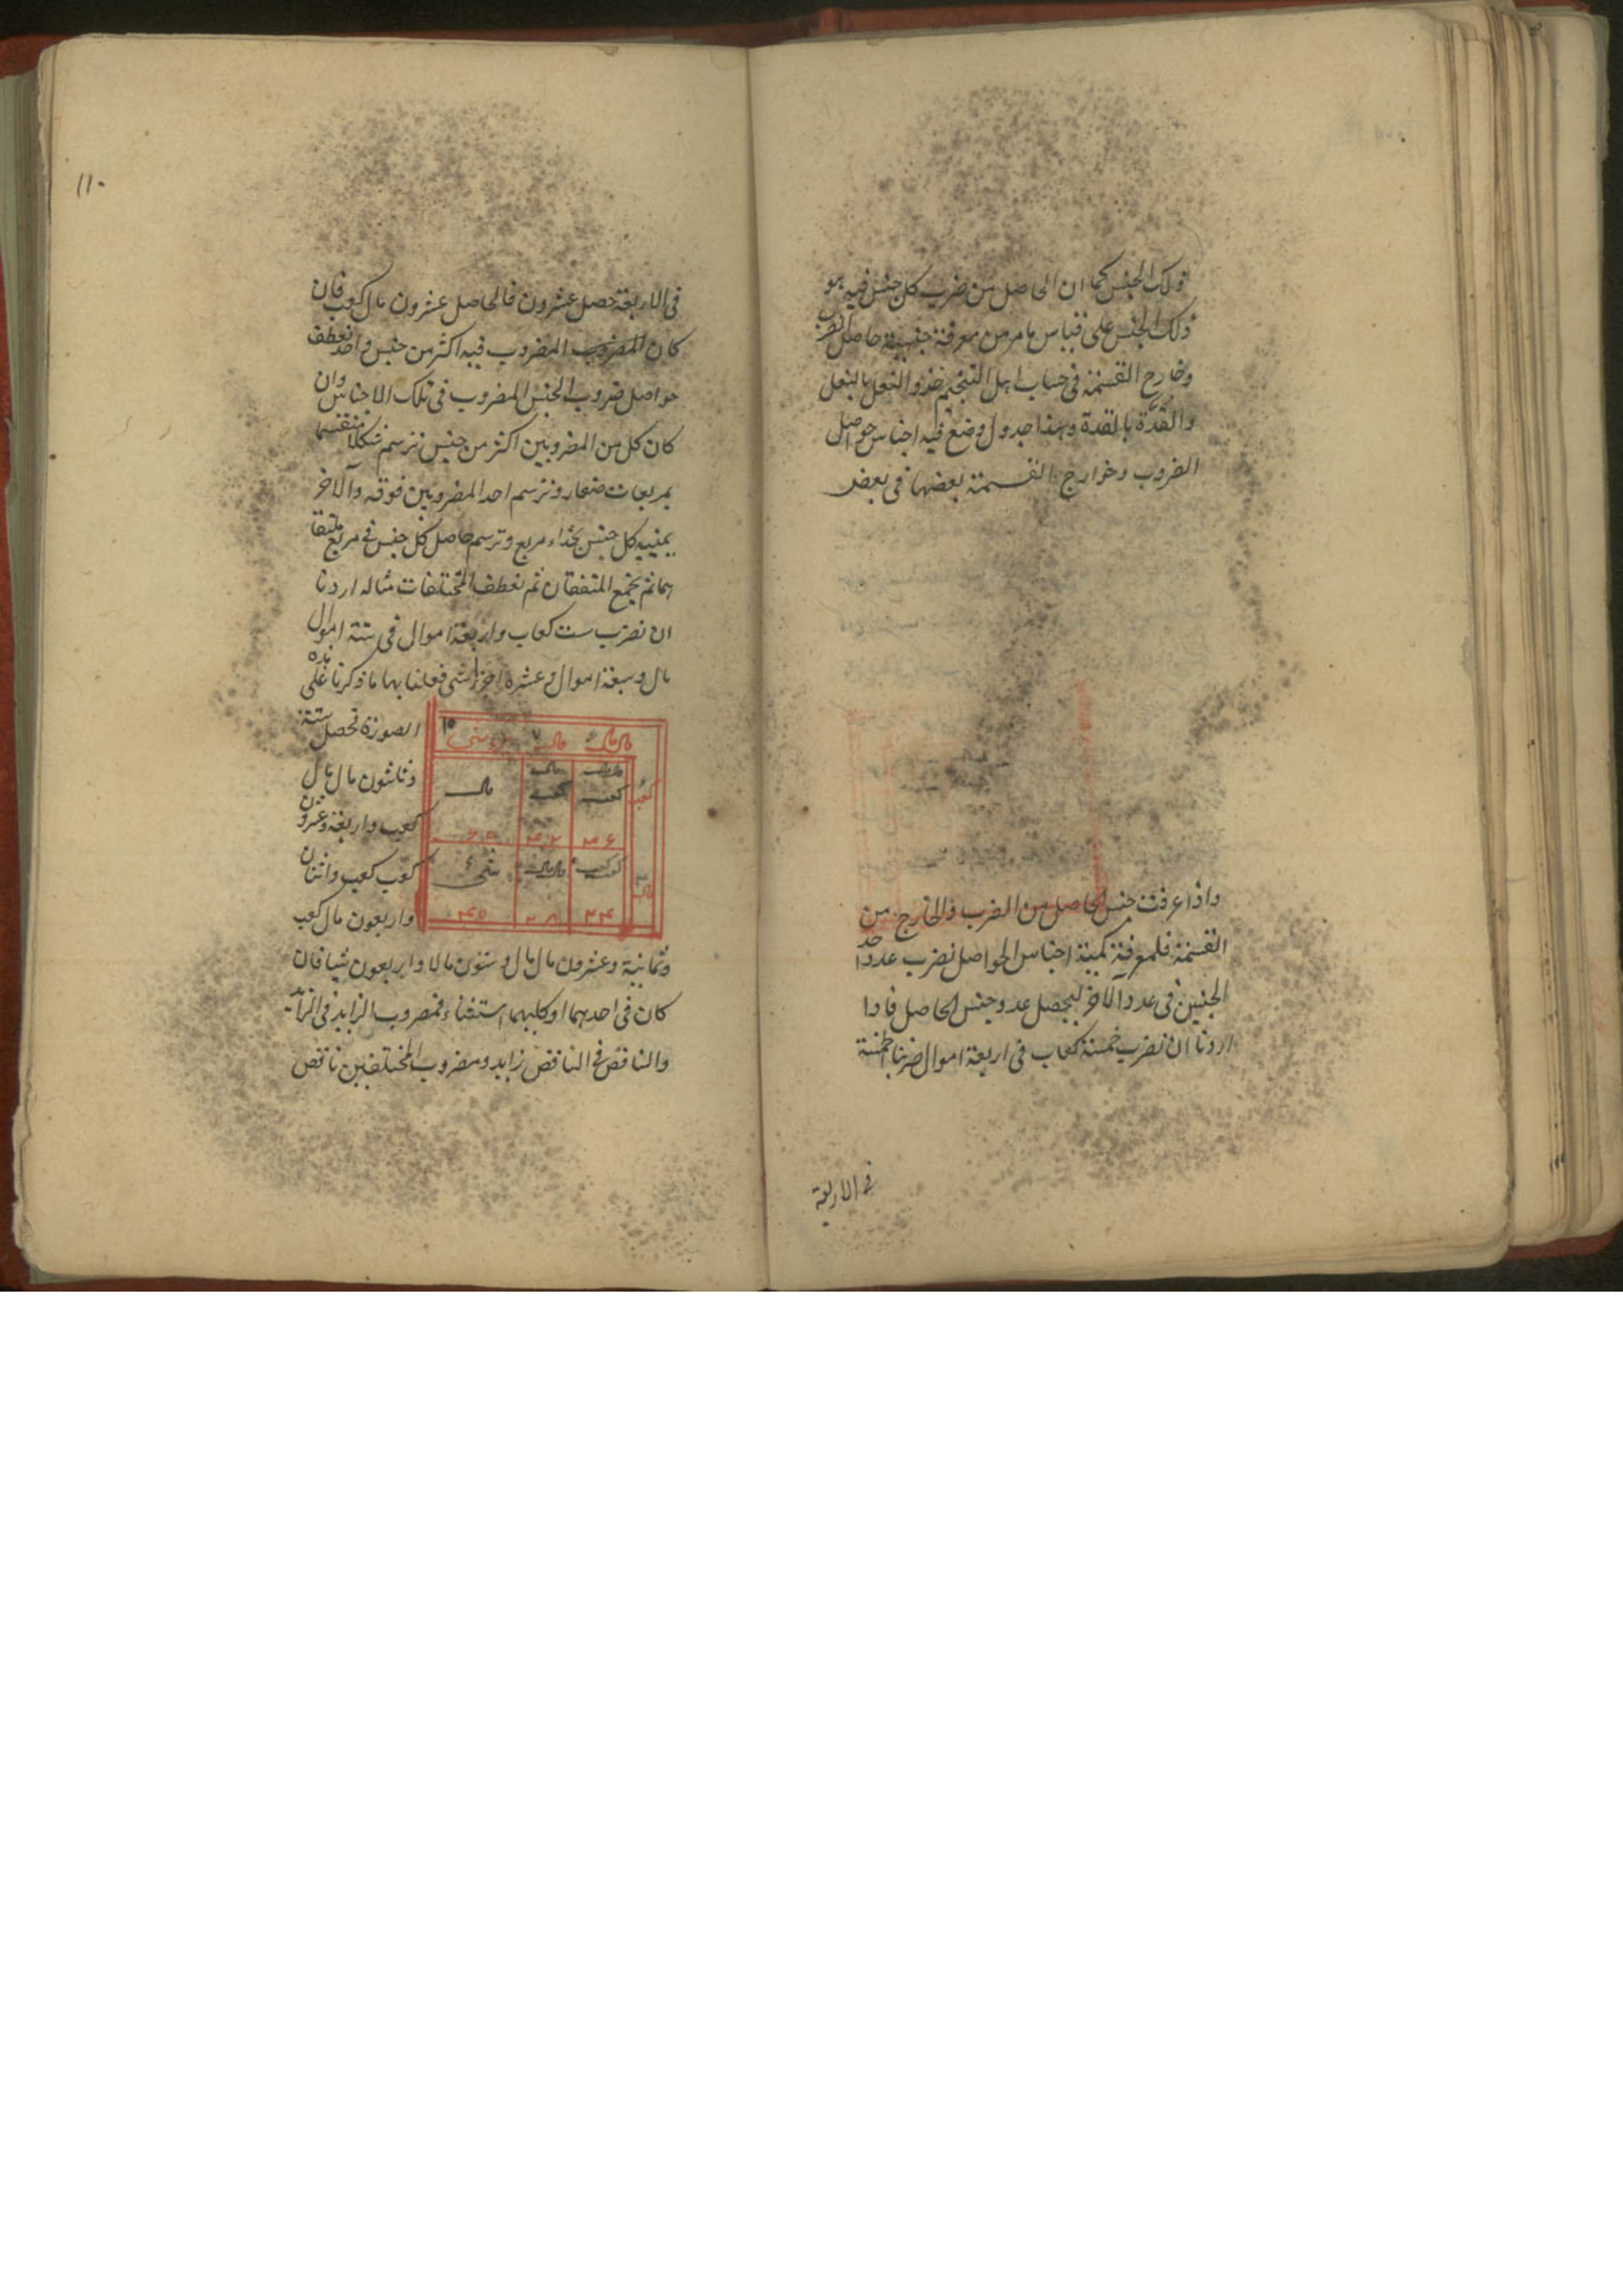 ذلك الجنس كما ان الحاصل من ضرب كل جنس فيه هو
ذلك الجنس على قياس ما مر من معرفة جنسية حاصل الضرب
وخارج القسمة في حساب اهل التنجيم حذو النعل بالنعل
والقذة بالقذة وهذا جدول وضع فيه اجناس حواصل
الضروب وخوارج القسمة بعضها في بعض
واذا عرفت جنس الحاصل من الضرب والخارج من
القسمة فلمعرفة كمية اجناس الحواصل نضرب عدد احد
الجنسين في عدد الآخر ليحصل عدد جنس الحاصل فاذا
اردنا ان نضرب خمسة كعاب في اربعة اموال ضربنا الخمسة
في الاربعة
١١٠
في الاربعة حصل عشرون فالحاصل عشرون مال كعب فان
كان المضروب المضروب فيه اكثر من جنس واحد نعطف
حواصل ضروب الجنس المضروب في تلك الاجناس وان
كان كل من المضروبين اكثر من جنس نرسم شكلا منقسما
بمربعات صغار ونرسم احد المضروبين فوقه والآخر
يمينه كل جنس بحذاء مربع ونرسم حاصل كل جنس في مربع ملتقا
هما ثم يجمع المتفقان ثم نعطف المختلفات مثاله اردنا
ان نضرب ست كعاب واربعة اموال في ستة اموال
مال وسبعة اموال وعشرة اجزاء شي فعلنا بها ما ذكرنا على هذه
الصورة تحصل ستة
وثلثون مال مال
كعب واربعة وعشرون
كعب كعب واثنان
واربعون مال كعب
مال مال مال ٧ ١٠
كعب مال مال كعب مال كعب مال
٣٦ ٤٢ ٦٠
مال كعب كعب مال مال شيء
٢٤ ٢٨ ٤٠
وثمانية وعشرون مال مال وستون مالا واربعون شيا فان
كان في احدهما او كليهما استثناء فمضروب الزايد في الزايد
والناقص في الناقص زايد ومضروب المختلفين ناقص